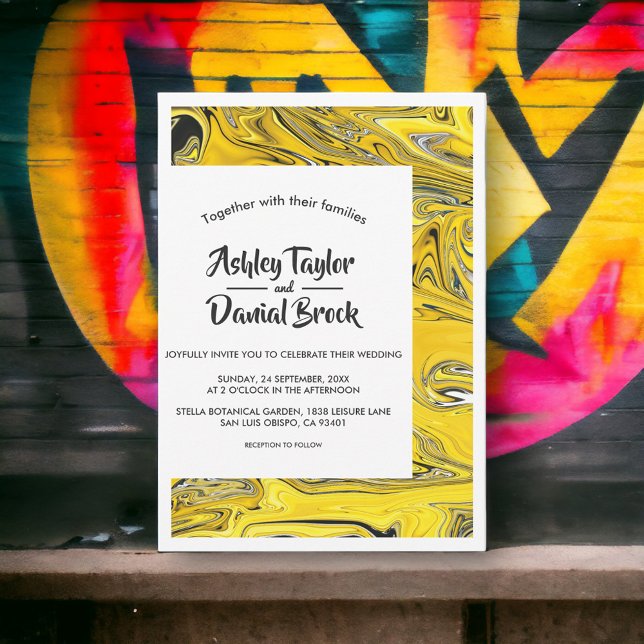 Together with their families
Ashley Taylor
and
Danial Brock
JOYFULLY INVITE YOU TO CELEBRATE THEIR WEDDING
SUNDAY, 24 SEPTEMBER, 20XX
AT 2 O'CLOCK IN THE AFTERNOON
STELLA BOTANICAL GARDEN, 1838 LEISURE LANE
SAN LUIS OBISPO, CA 93401
RECEPTION TO FOLLOW